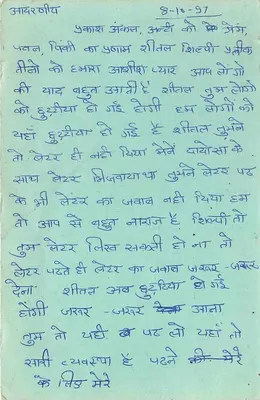 आदरणीय
8-10-97
प्रकाश अंकल, अन्टी को प्रेम,
पवन, पिंकी का प्रणाम शीतल शिल्पी प्रतीक
तीनो को हमारा आशीश प्यार आप लोगो
की याद बहुत आती है शीतल तुम लोगो
को छुट्टीया हो गई होगी हम लोगो को
यहाँ छुट्टीया हो गई है शीतल तुमने
तो लेटर ही नही दिया मेने
साथ लेटर भिजवाया था तुमने लेटर पढ
के भी लेटर का जवाब नही दिया हम
तो आप से बहुत नाराज है शिल्पी तो
तुम लेटर लिख सकती हो ना तो
लेटर पढते ही लेटर का जवाब जरूर-जरूर
देना शीतल अब छुट्टीया हो गई
होगी जरूर-जरूर आना
तुम तो यही पढ लो यहाँ तो
सारी व्यवस्था है पढने की मेरे
के लिए मेरे